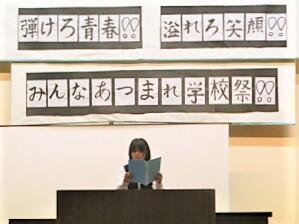 弾けろ青春!!
溢れろ笑顔!!
みんなあつまれ学校祭!!